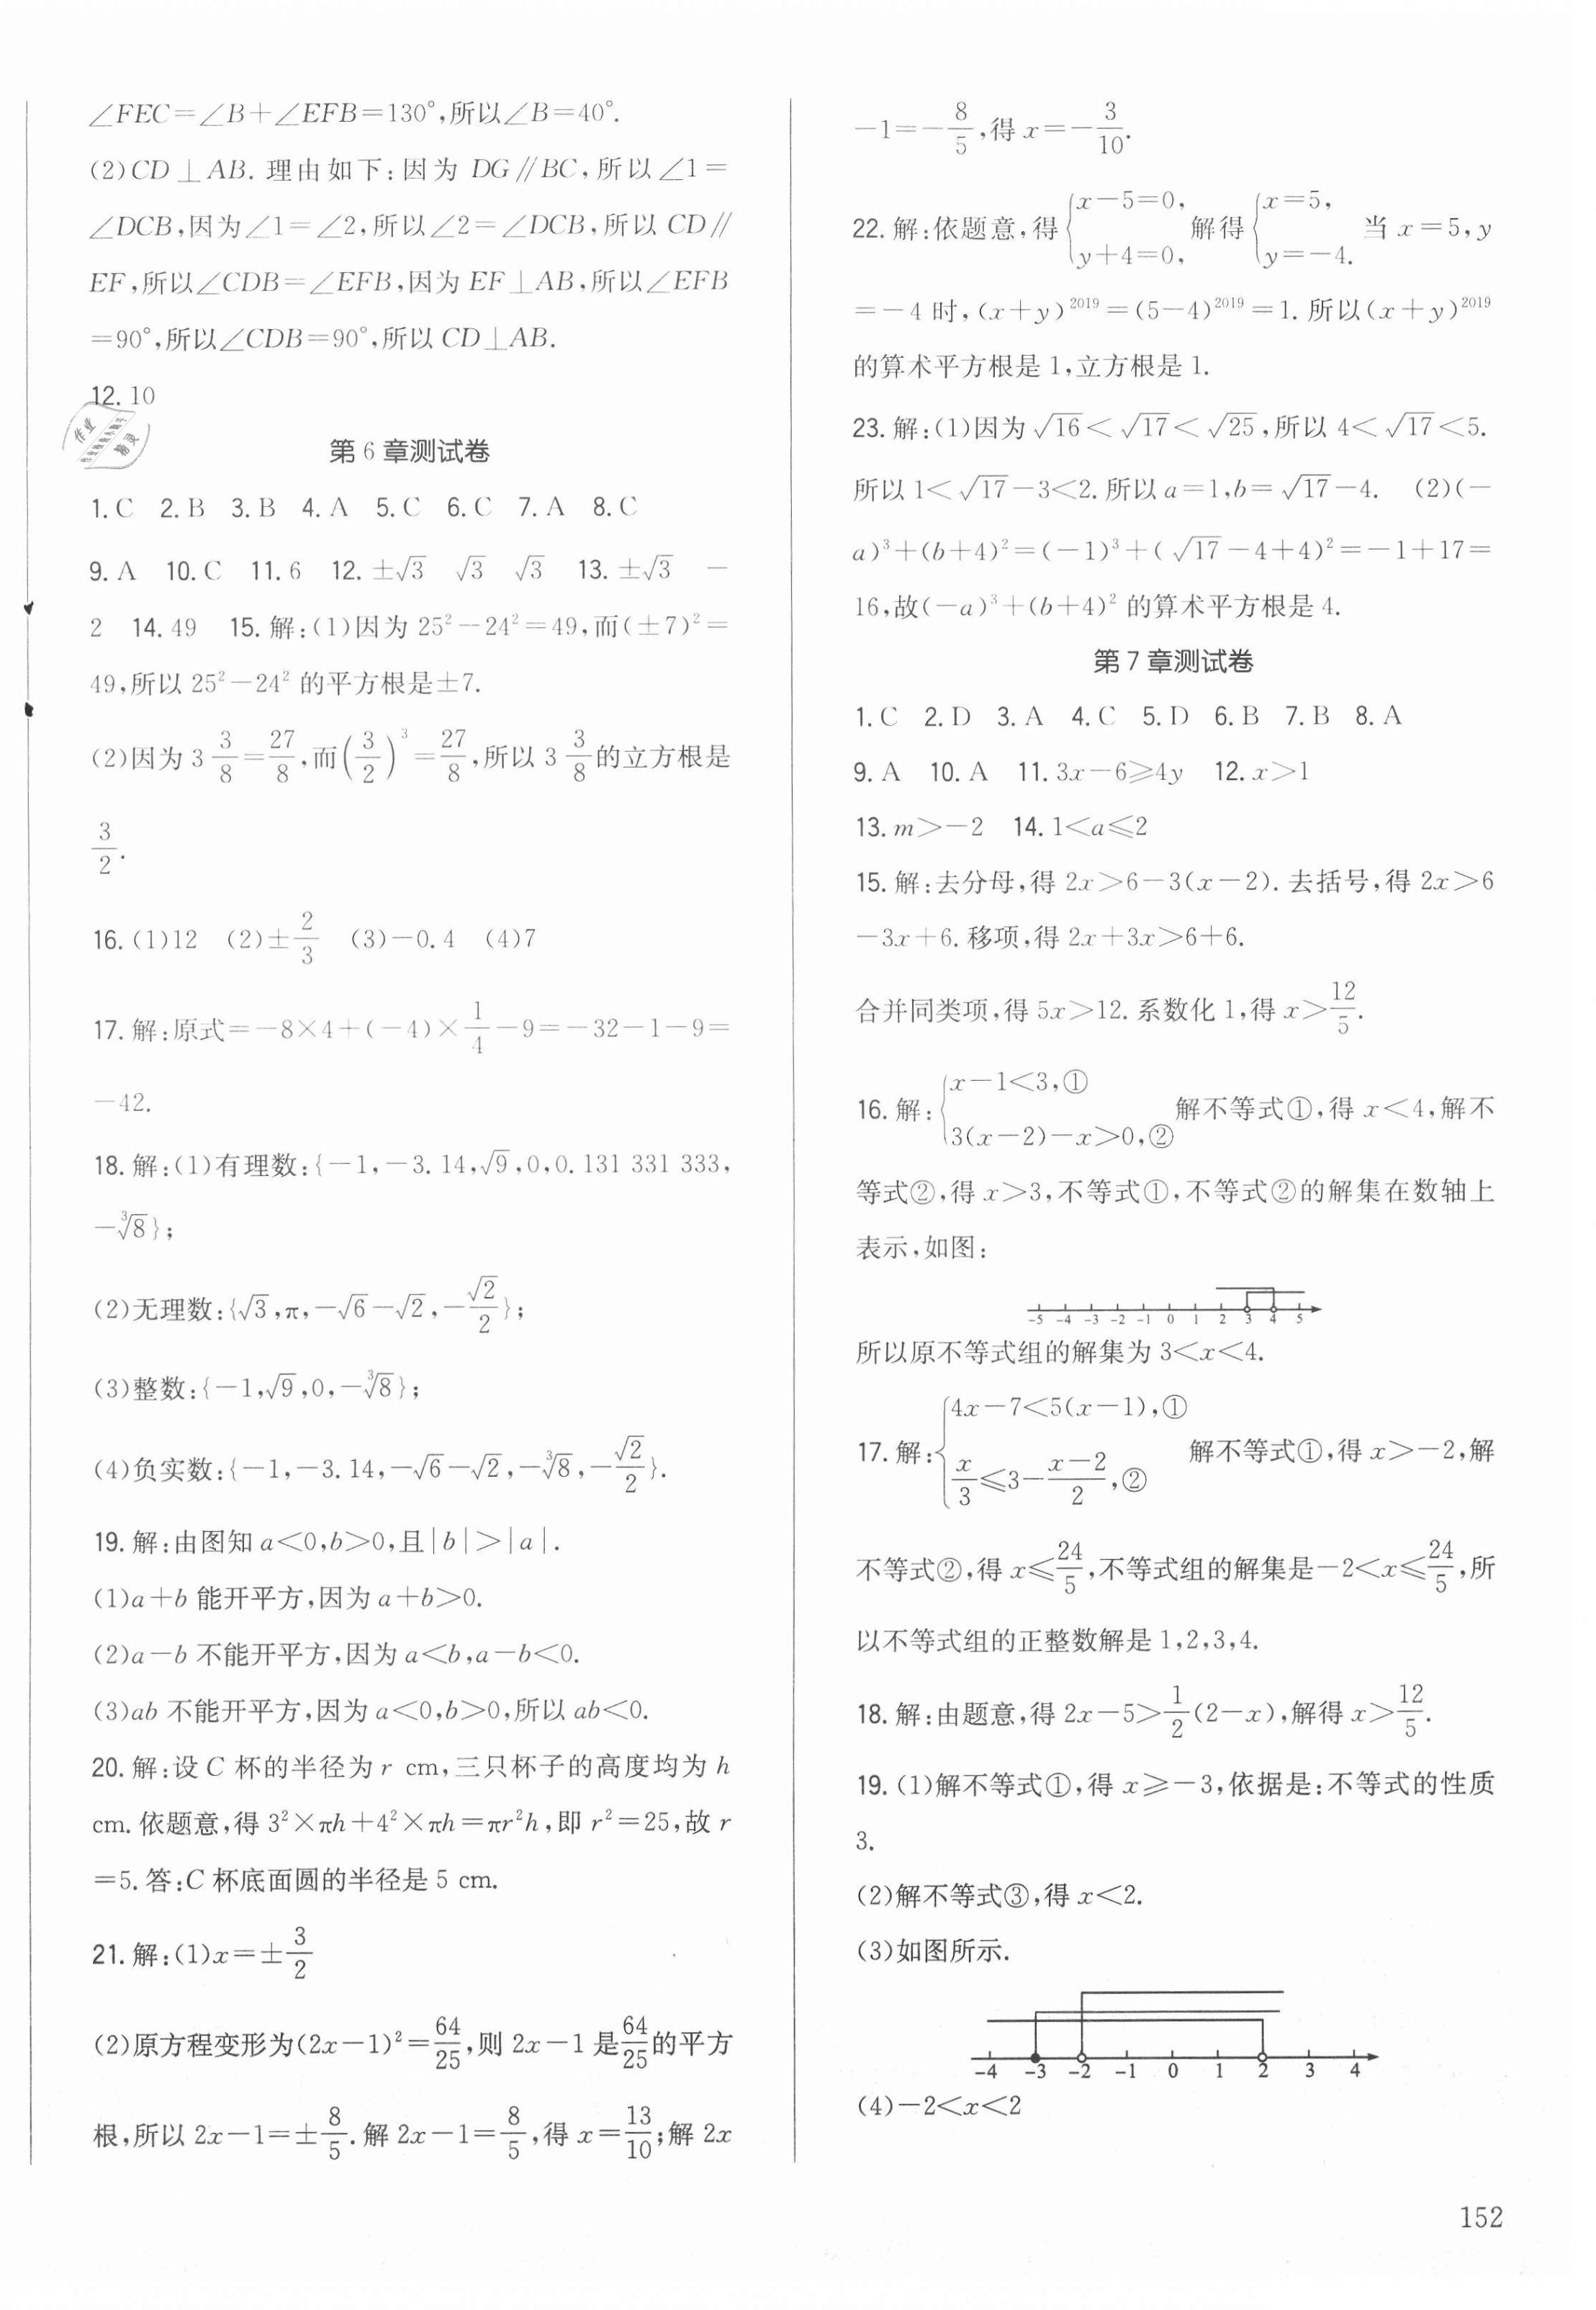 ∠FEC=∠B+∠EFB=130°,所以∠B=40°.
(2)CD⊥AB. 理由如下:因为 DG∥BC,所以∠1=
∠DCB,因为∠1=∠2,所以∠2=∠DCB,所以 CD∥
EF,所以∠CDB=∠EFB,因为 EF⊥AB,所以∠EFB
=90°,所以∠CDB=90°,所以 CD⊥AB.
12. 10
第 6 章测试卷
1. C 2. B 3. B 4. A 5. C 6. C 7. A 8. C
9. A 10. C 11. 6 12. ±√3 √3 √3 13. ±√3 −
2 14. 49 15. 解:(1)因为 25²−24²=49,而(±7)²=
49,所以 25²−24² 的平方根是±7.
(2)因为 3 3/8=27/8,而(3/2)³=27/8,所以 3 3/8 的立方根是
3/2.
16. (1)12 (2)±2/3 (3)−0.4 (4)7
17. 解:原式=−8×4+(−4)×1/4−9=−32−1−9=
−42.
18. 解:(1)有理数:{−1,−3.14,√9,0,0.131 331 333,
−∛8};
(2)无理数:{√3,π,−√6−√2,−√2/2};
(3)整数:{−1,√9,0,−∛8};
(4)负实数:{−1,−3.14,−√6−√2,−∛8,−√2/2}.
19. 解:由图知 a<0,b>0,且|b|>|a|.
(1)a+b 能开平方,因为 a+b>0.
(2)a−b 不能开平方,因为 a<b,a−b<0.
(3)ab 不能开平方,因为 a<0,b>0,所以 ab<0.
20. 解:设 C 杯的半径为 r cm,三只杯子的高度均为 h
cm. 依题意,得 3²×πh+4²×πh=πr²h,即 r²=25,故 r
=5. 答:C 杯底面圆的半径是 5 cm.
21. 解:(1)x=±3/2
(2)原方程变形为(2x−1)²=64/25,则 2x−1 是64/25的平方
根,所以 2x−1=±8/5. 解 2x−1=8/5,得 x=13/10;解 2x
−1=−8/5,得 x=−3/10.
22. 解:依题意,得{x−5=0, y+4=0, 解得{x=5, y=−4. 当 x=5,y
=−4 时,(x+y)²⁰¹⁹=(5−4)²⁰¹⁹=1. 所以(x+y)²⁰¹⁹
的算术平方根是 1,立方根是 1.
23. 解:(1)因为√16<√17<√25,所以 4<√17<5.
所以 1<√17−3<2. 所以 a=1,b=√17−4. (2)(−
a)³+(b+4)²=(−1)³+(√17−4+4)²=−1+17=
16,故(−a)³+(b+4)² 的算术平方根是 4.
第 7 章测试卷
1. C 2. D 3. A 4. C 5. D 6. B 7. B 8. A
9. A 10. A 11. 3x−6⩾4y 12. x>1
13. m>−2 14. 1<a⩽2
15. 解:去分母,得 2x>6−3(x−2). 去括号,得 2x>6
−3x+6. 移项,得 2x+3x>6+6.
合并同类项,得 5x>12. 系数化 1,得 x>12/5.
16. 解:{x−1<3,① 3(x−2)−x>0,② 解不等式①,得 x<4,解不
等式②,得 x>3,不等式①,不等式②的解集在数轴上
表示,如图:
-5 -4 -3 -2 -1 0 1 2 3 4 5
所以原不等式组的解集为 3<x<4.
17. 解:{4x−7<5(x−1),① x/3⩽3−(x−2)/2,② 解不等式①,得 x>−2,解
不等式②,得 x⩽24/5,不等式组的解集是−2<x⩽24/5,所
以不等式组的正整数解是 1,2,3,4.
18. 解:由题意,得 2x−5>1/2(2−x),解得 x>12/5.
19. (1)解不等式①,得 x⩾−3,依据是:不等式的性质
3.
(2)解不等式③,得 x<2.
(3)如图所示.
-4 -3 -2 -1 0 1 2 3 4
(4)−2<x<2
152